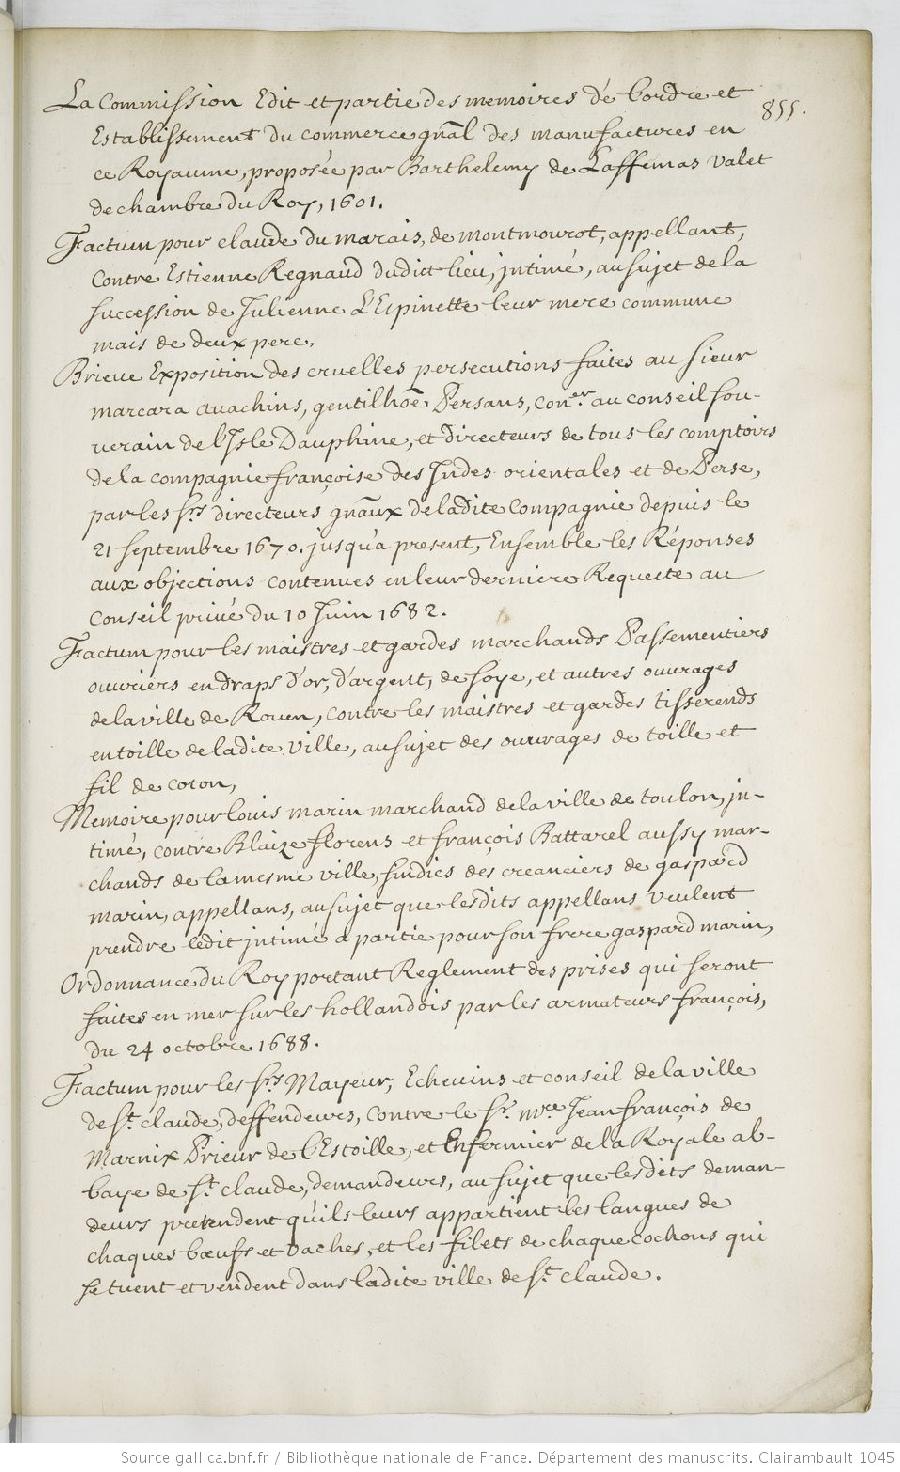 La Commission Edit et partie des memoires de l'ordre et
855.
Establissement du commerce gnāl des manufactures en
ce Royaume, proposée par Barthelemy de Laffemas valet
de chambre du Roy, 1601.
Factum pour claude du marais, de montmourot, appellant,
contre Estienne Regnaud dudict lieu, jntimé, au sujet de la
succession de Julienne L'Espinette leur mere commune
mais de deux pere.
Brieve Exposition des cruelles persecutions faites au sieur
marcara avachins, gentilhoē Persans, con.er au conseil sou-
verain de l'Isle Dauphine, et directeurs de tous les comptoirs
de la compagnie françoise des Indes orientales et de Perse,
par les srs directeurs gnāux de ladite compagnie depuis le
21 septembre 1670. jusqu'a present, Ensemble les Réponses
aux objections contenues en leur derniere Requeste au
Conseil privé du 10 Juin 1682.
Factum pour les maistres et gardes marchands Passementiers
ouvriers en draps d'or, d'argent, de soye, et autres ouvrages
de la ville de Rouen, contre les maistres et gardes tisserends
en toille de ladite ville, au sujet des ouvrages de toille et
fil de coton,
Memoire pour louis marin marchand de la ville de toulon, jn-
timé, contre Blaize florens et françois Battarel aussy mar-
chands de la mesme ville, sindics des creanciers de gaspard
marin, appellans, au sujet que lesdits appellans veulent
prendre ledit jntimé a partie pour son frere gaspard marin,
Ordonnance du Roy portant Reglement des prises qui seront
faites en mer sur les hollandois par les armateurs françois,
du 24 octobre 1688.
Factum pour les srs Mayeur, Echevins et conseil de la ville
de st claude, deffendeurs, contre le sr. mre Jean françois de
Marnix Prieur de l'Estoille, et Enfermier de la Royale ab-
baye de st claude, demandeurs, au sujet que lesdits deman-
deurs pretendent qu'ils leurs appartient les langues de
chaques bœufs et vaches, et les filets de chaque cochons qui
se tuent et vendent dans ladite ville de st claude.
Source gallica.bnf.fr / Bibliothèque nationale de France. Département des manuscrits. Clairambault 1045